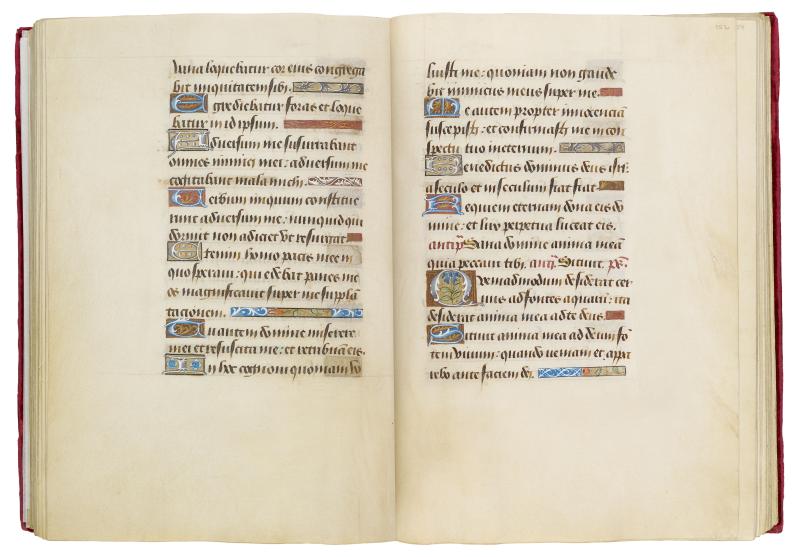 vana loquebatur cor eius congrega
bit iniquitatem sibi.
Egrediebatur foras et loque
batur in id ipsum.
Adversum me susurrabant
omnes inimici mei: adversum me
cogitabant mala michi.
Verbum iniquum constitue
runt adversum me: nunquid qui
dormit non adiciet ut resurgat.
Etenim homo pacis mee in
quo speravi: qui edebat panes me
os magnificavit super me supplā
tationem.
Tu autem domine miserere
mei et resuscita me: et retribuā eis.
In hoc cognovi quoniam vo
luisti me: quoniam non gaude
bit inimicus meus super me.
Me autem propter innocenciā
suscepisti: et confirmasti me in con
spectu tuo ineternum.
Benedictus dominus deus isrl
a seculo et in seculum fiat fiat.
Requiem eternam dona eis do
mine: et lux perpetua luceat eis.
antiph͞. Sana domine animā meā
quia peccavi tibi. antiph͞. Sitivit. ps͞.
Quemadmodū desiderat cer
vus ad fontes aquarū: ita
desiderat anima mea ad te deus.
Sitivit anima mea ad deum fō
tem vivum: quando veniam et appa
rebo ante faciem dei.